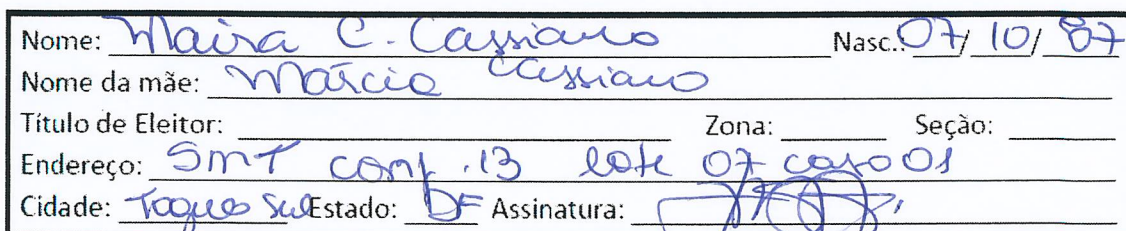 Nome: Maira C. Cassiano Nasc.: 07/ 10/ 87
Nome da mãe: Márcia Cassiano
Título de Eleitor: Zona: Seção:
Endereço: SMT conj. 13 lote 07 casa 01
Cidade: Sul Estado: DF Assinatura: